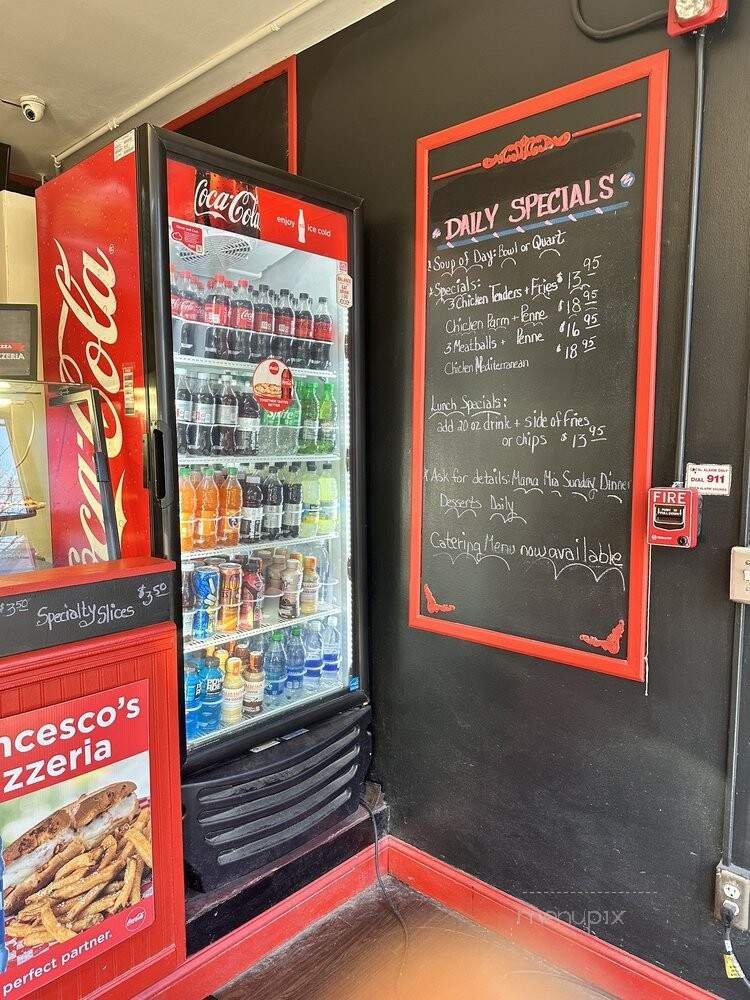 Coca-Cola
enjoy ice cold
Coca-Cola
DAILY SPECIALS
Soup of Day: Bowl or Quart
Specials:
3 Chicken Tenders + Fries $13 95
Chicken Parm + Penne $18 95
3 Meatballs + Penne $16 95
Chicken Mediterranean $18 95
Lunch Specials:
add 20 oz drink + side of fries
or chips $13 95
Ask for details: Mama Mia Sunday Dinner
Desserts Daily
Catering Menu now available
DIAL 911
FIRE
ZZERIA
$3 50
Specialty Slices $3 50
ncesco's
zzeria
perfect partner.
Coca-Cola
menupix